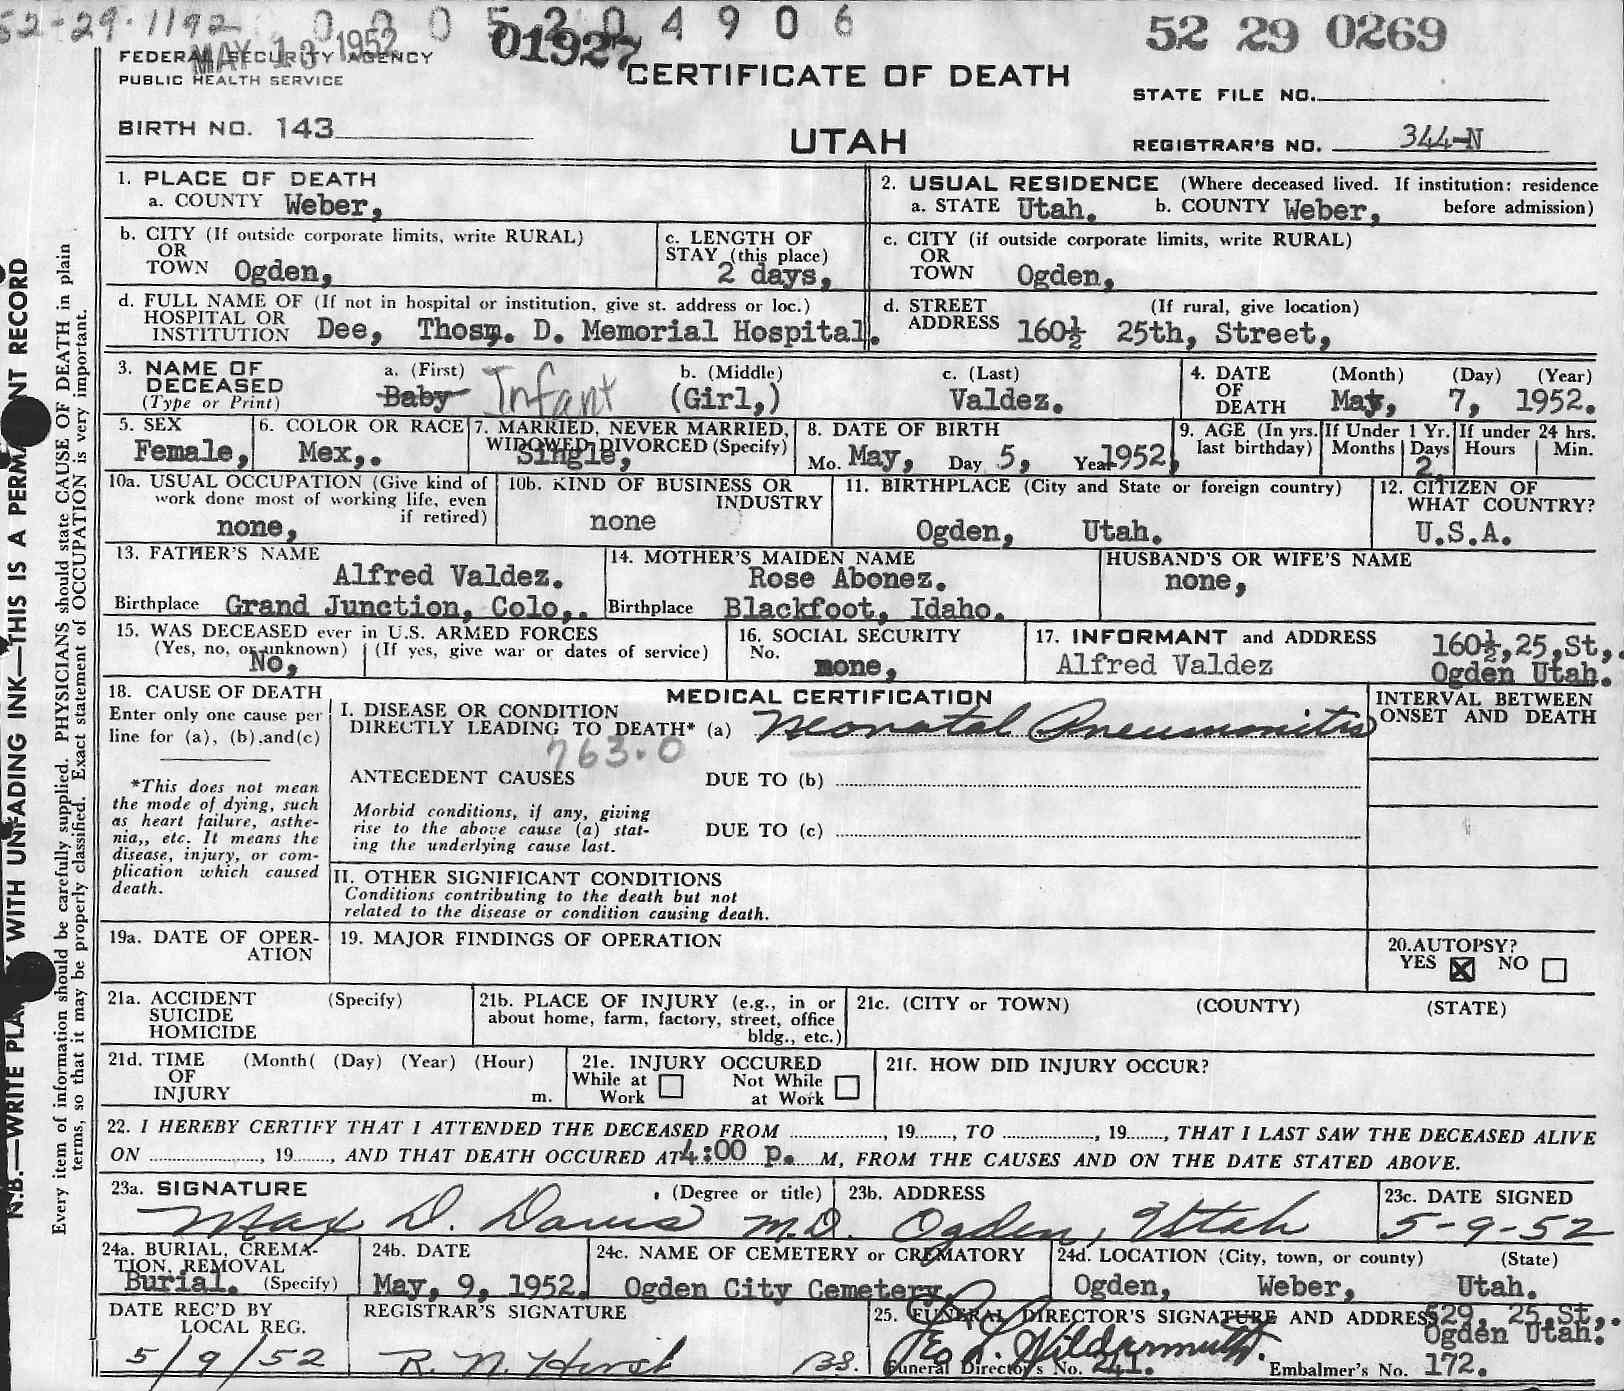 52-29-1192 0005204906
MAY 13 1952 01927 52 29 0269
FEDERAL SECURITY AGENCY
PUBLIC HEALTH SERVICE
CERTIFICATE OF DEATH
STATE FILE NO.
BIRTH NO. 143
UTAH
REGISTRAR'S NO. 344-N
1. PLACE OF DEATH
a. COUNTY Weber,
2. USUAL RESIDENCE (Where deceased lived. If institution: residence before admission)
a. STATE Utah. b. COUNTY Weber,
b. CITY (If outside corporate limits, write RURAL)
OR
TOWN Ogden,
c. LENGTH OF
STAY (this place)
2 days,
c. CITY (if outside corporate limits, write RURAL)
OR
TOWN Ogden,
d. FULL NAME OF (If not in hospital or institution, give st. address or loc.)
HOSPITAL OR
INSTITUTION Dee, Thosm. D. Memorial Hospital.
d. STREET (If rural, give location)
ADDRESS 160½ 25th, Street,
3. NAME OF
DECEASED
(Type or Print)
a. (First) b. (Middle) c. (Last)
Baby Infant (Girl,) Valdez.
4. DATE
OF
DEATH
(Month) (Day) (Year)
May, 7, 1952.
5. SEX
Female,
6. COLOR OR RACE
Mex,.
7. MARRIED, NEVER MARRIED,
WIDOWED, DIVORCED (Specify)
Single,
8. DATE OF BIRTH
Mo. May, Day 5, Year 1952,
9. AGE (In yrs. last birthday)
If Under 1 Yr.
Months Days
2
If under 24 hrs.
Hours Min.
10a. USUAL OCCUPATION (Give kind of
work done most of working life, even
if retired)
none,
10b. KIND OF BUSINESS OR
INDUSTRY
none
11. BIRTHPLACE (City and State or foreign country)
Ogden, Utah.
12. CITIZEN OF
WHAT COUNTRY?
U.S.A.
13. FATHER'S NAME
Alfred Valdez.
Birthplace Grand Junction, Colo,.
14. MOTHER'S MAIDEN NAME
Rose Abonez.
Birthplace Blackfoot, Idaho.
HUSBAND'S OR WIFE'S NAME
none,
15. WAS DECEASED ever in U.S. ARMED FORCES
(Yes, no, or unknown) (If yes, give war or dates of service)
No,
16. SOCIAL SECURITY
No.
none,
17. INFORMANT and ADDRESS
Alfred Valdez
160½,25,St,.
Ogden Utah.
18. CAUSE OF DEATH
Enter only one cause per
line for (a), (b).and(c)
*This does not mean
the mode of dying, such
as heart failure, asthe-
nia,, etc. It means the
disease, injury, or com-
plication which caused
death.
MEDICAL CERTIFICATION
I. DISEASE OR CONDITION
DIRECTLY LEADING TO DEATH* (a) Neonatal Pneumonitis
763.0
ANTECEDENT CAUSES DUE TO (b)
Morbid conditions, if any, giving
rise to the above cause (a) stat-
ing the underlying cause last.
DUE TO (c)
II. OTHER SIGNIFICANT CONDITIONS
Conditions contributing to the death but not
related to the disease or condition causing death.
INTERVAL BETWEEN
ONSET AND DEATH
19a. DATE OF OPER-
ATION
19. MAJOR FINDINGS OF OPERATION
20.AUTOPSY?
YES NO
21a. ACCIDENT (Specify)
SUICIDE
HOMICIDE
21b. PLACE OF INJURY (e.g., in or
about home, farm, factory, street, office
bldg., etc.)
21c. (CITY or TOWN) (COUNTY) (STATE)
21d. TIME (Month( (Day) (Year) (Hour)
OF
INJURY m.
21e. INJURY OCCURED
While at Work Not While at Work
21f. HOW DID INJURY OCCUR?
22. I HEREBY CERTIFY THAT I ATTENDED THE DECEASED FROM , 19 , TO , 19 , THAT I LAST SAW THE DECEASED ALIVE
ON , 19 , AND THAT DEATH OCCURED AT 4:00 p. M, FROM THE CAUSES AND ON THE DATE STATED ABOVE.
23a. SIGNATURE (Degree or title)
Max D. Davis M.D.
23b. ADDRESS
Ogden, Utah
23c. DATE SIGNED
5-9-52
24a. BURIAL, CREMA-
TION, REMOVAL
Burial. (Specify)
24b. DATE
May, 9, 1952.
24c. NAME OF CEMETERY or CREMATORY
Ogden City Cemetery,
24d. LOCATION (City, town, or county) (State)
Ogden, Weber, Utah.
DATE REC'D BY
LOCAL REG.
5/9/52
REGISTRAR'S SIGNATURE
R. N. Hirst
25. FUNERAL DIRECTOR'S SIGNATURE AND ADDRESS 529, 25,St,.
Ogden Utah.
Funeral Director's No. 241. Embalmer's No. 172.
N.B.—WRITE WITH UNFADING INK—THIS IS A PERMANENT RECORD
Every item of information should be carefully supplied. PHYSICIANS should state CAUSE OF DEATH in plain
terms, so that it may be properly classified. Exact statement of OCCUPATION is very important.